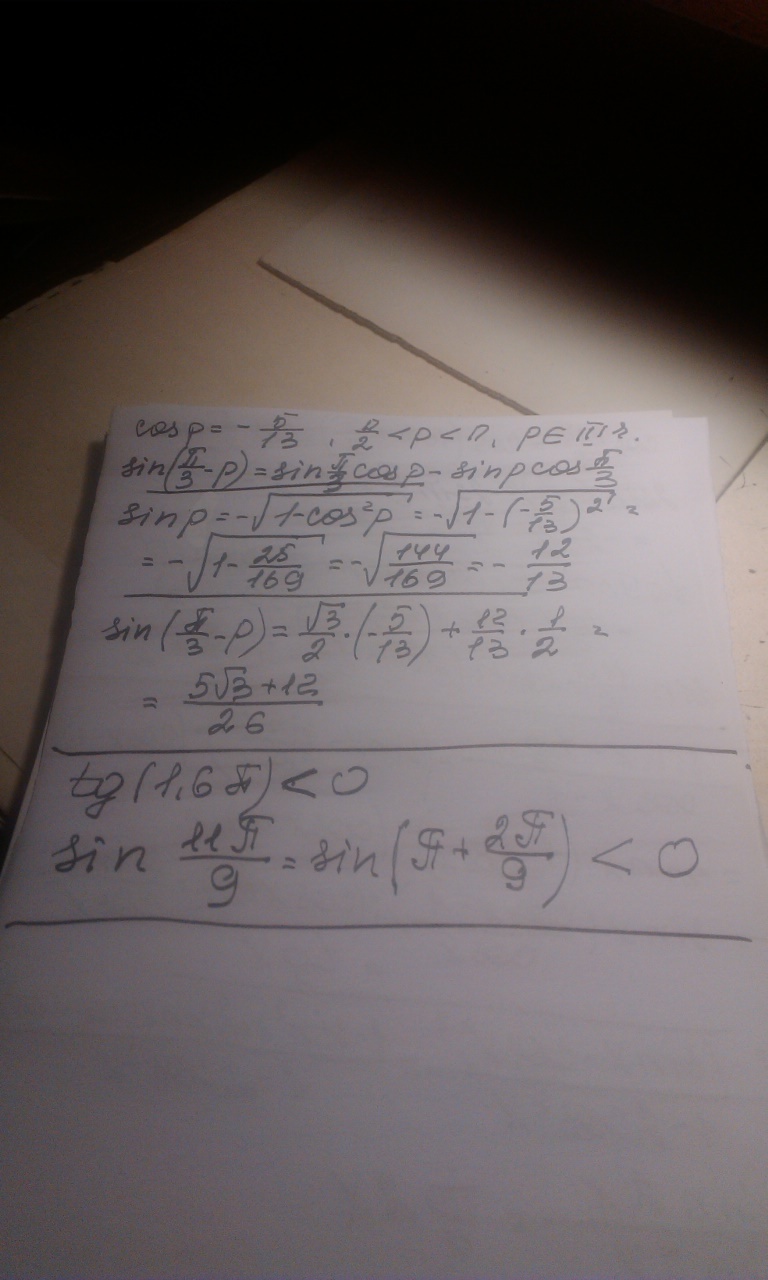 cos p = - 5/13 , π/2 < p < π, p ∈ III ч.
sin(π/3 - p) = sin π/3 cos p - sin p cos π/3
sin p = -√(1-cos²p) = -√(1-(-5/13)²) =
= -√(1- 25/169) = -√(144/169) = - 12/13
sin(π/3 - p) = √3/2 · (-5/13) + 12/13 · 1/2 =
= (5√3+12)/26
tg(1,6π) < 0
sin 11π/9 = sin(π + 2π/9) < 0